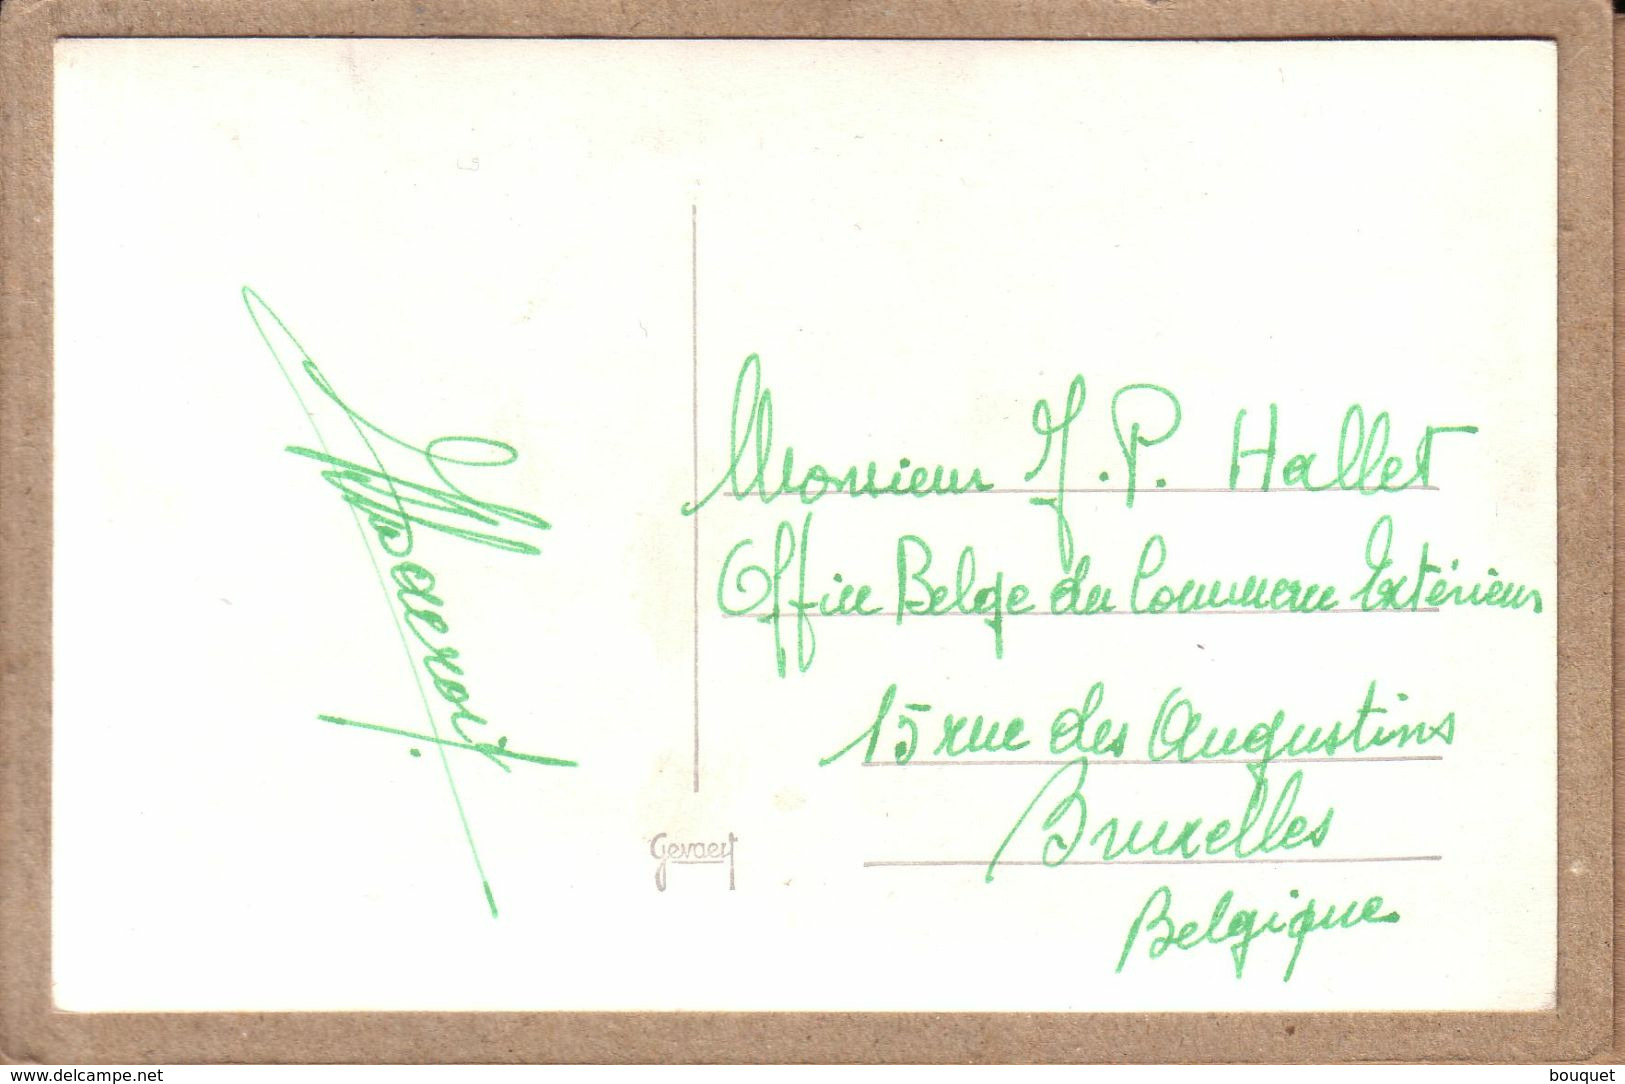 Monsieur J.P. Hallet
Office Belge du Commerce Extérieur
15 rue des Augustins
Bruxelles
Belgique
Gevaert
www.delcampe.net
bouquet